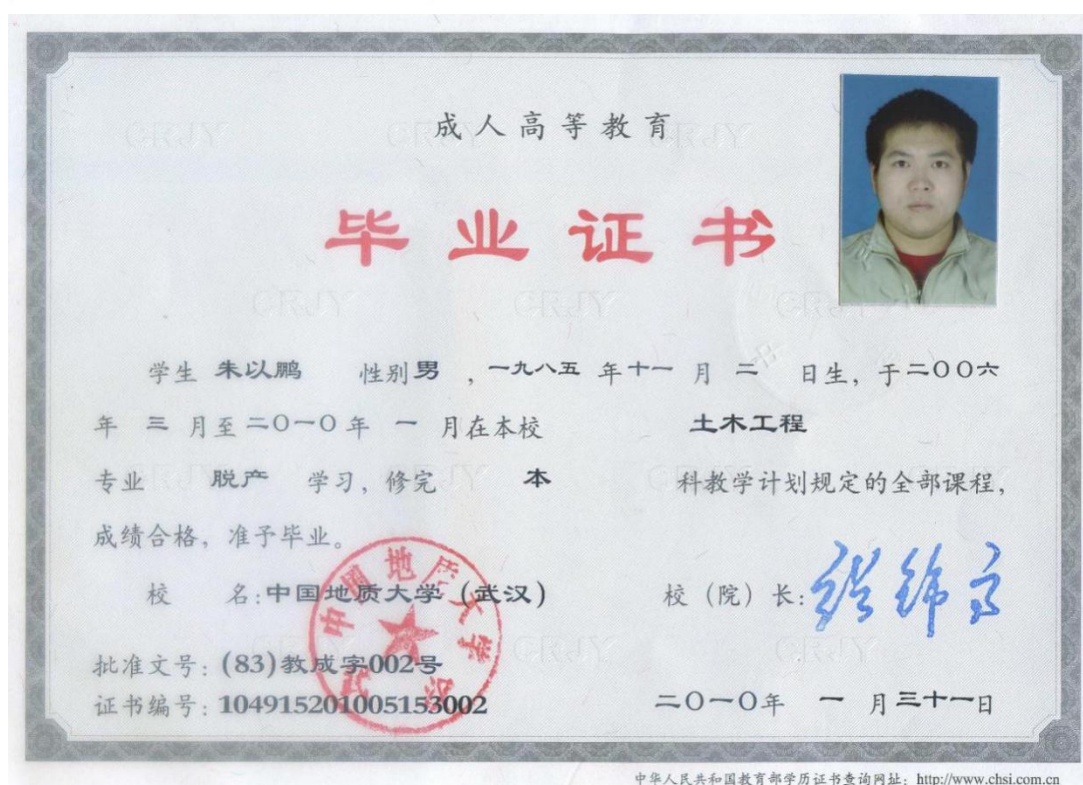 成人高等教育
毕业证书
学生 朱以鹏 性别男 ，一九八五 年十一 月 二 日生，于二〇〇六
年 三 月至二〇一〇年 一 月在本校 土木工程
专业 脱产 学习，修完 本 科教学计划规定的全部课程，
成绩合格，准予毕业。
校 名:中国地质大学（武汉） 校（院）长:
批准文号：(83)教成字002号
证书编号：104915201005153002 二〇一〇年 一 月三十一日
中国地质大学
武汉
中华人民共和国教育部学历证书查询网址：http://www.chsi.com.cn